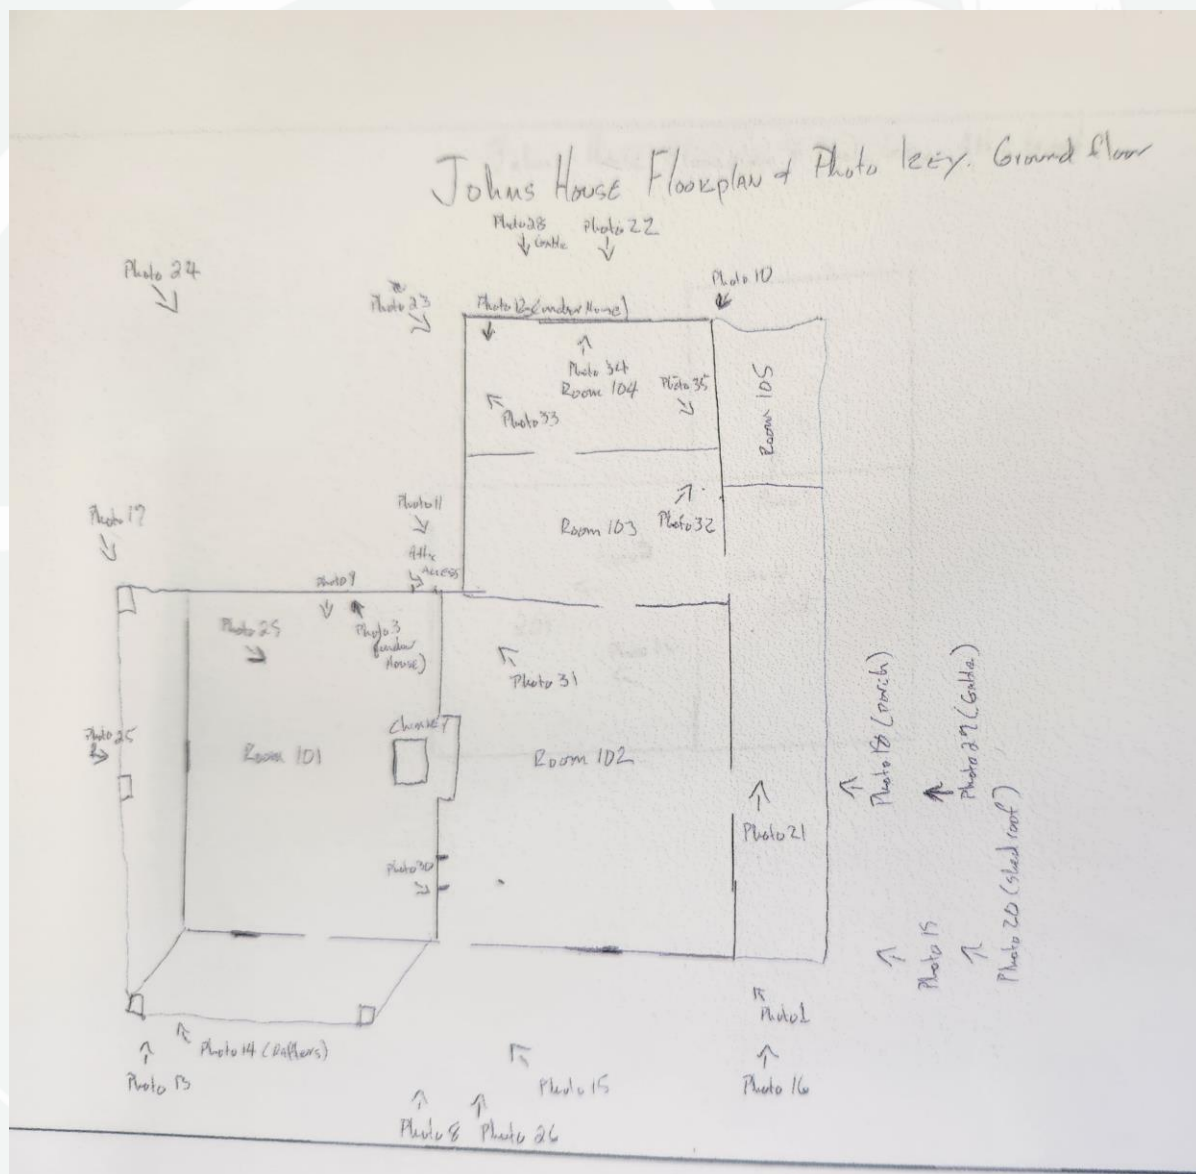 Johns House Floorplan & Photo Key. Ground floor
Photo 28
Gable
Photo 22
Photo 24
Photo 23
Photo 10
(under House)
Photo 34
Room 104
Photo 35
Photo 33
Room 105
Photo 11
Attic
Access
Room 103
Photo 32
Photo 17
Photo 9
Photo 3
(under
House)
Photo 25
Photo 31
Chimney
Photo 25
Room 101
Room 102
Photo 18 (Porch)
Photo 29 (Gable)
Photo 21
Photo 30
Photo 20 (shed roof)
Photo 19
Photo 1
Photo 14 (Rafters)
Photo 13
Photo 15
Photo 16
Photo 8
Photo 26